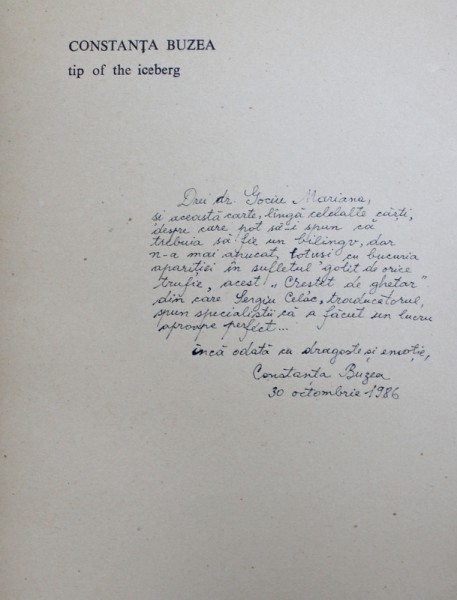 CONSTANȚA BUZEA
tip of the iceberg
Drei dr. Gociu Mariana,
și această carte, lîngă celelalte cărți,
despre care pot să-i spun că
trebuia să fie un bilingv, dar
n-a mai apucat, totuși cu bucuria
apariției în sufletul golit de orice
trufie, acest „Creștet de ghețar”
din care Sergiu Celac, traducătorul,
spun specialiștii că a făcut un lucru
aproape perfect...
încă odată cu dragoste și emoție,
Constanța Buzea
30 octombrie 1986